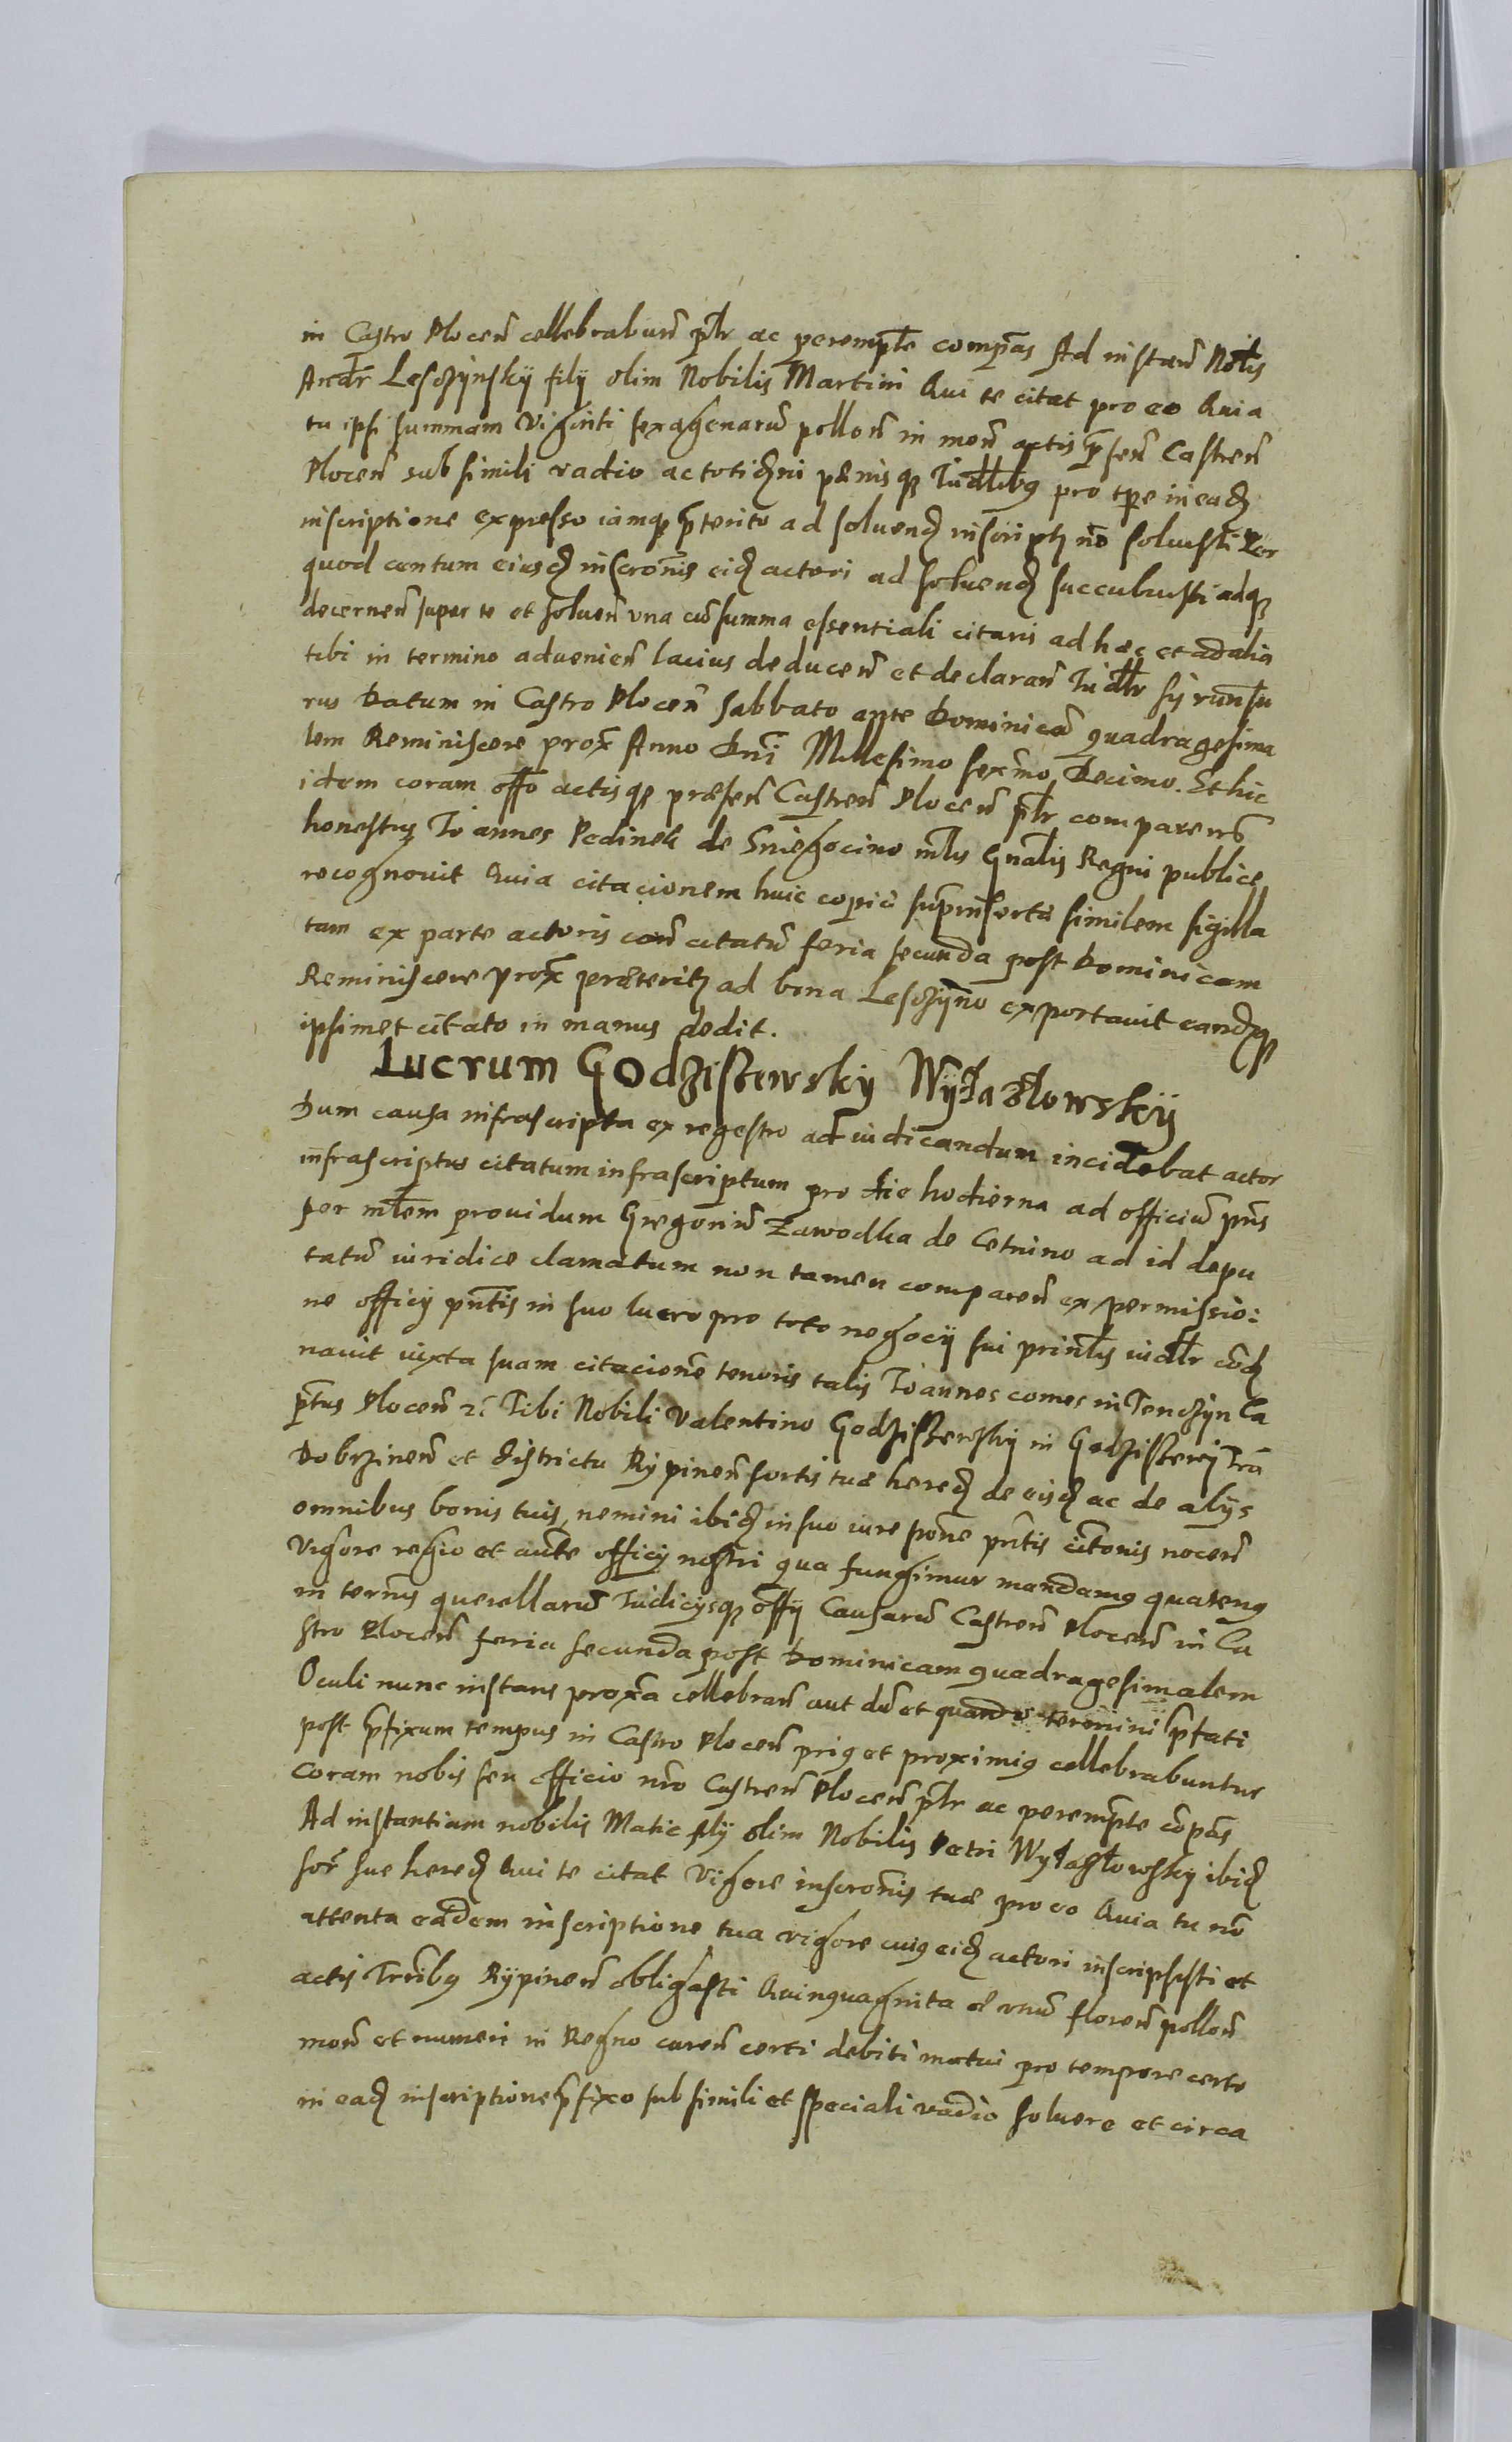 in Castro Plocen̄ cellebrabun̄ pl̄r ac perempt̄e comp̄as Ad instan̄ Nōlis
Andr̄ Lesczÿnskÿ filÿ olim Nobilis Martini Qui te citat pro eo Quia
tu ipsi summam Viginti sexagenarū pollon̄ in mon̄ actis p̄sen̄ Castren̄
Plocen̄ sub simili vadio ac totidȝni pænisqȝ Iudl̄ibȝ pro tp̄e in eadȝ
inscriptione expresso iamqȝ p̄terito ad soluendȝ inscriptȝ nō soluisti Per
quod centum eiusdȝ inscrōnis eidȝ actori ad soluendȝ succubuisti adqȝ
decernen̄ super te et soluen̄ vna cū summa essentiali citaris ad hæc et ad alia
tibi in termino aduenien̄ lacius deducen̄ et declaran̄ Iudl̄r sÿ run̄su
rus Datum in Castro Plocen̄ Sabbato ante Dominicā quadragesima
lem Reminiscere prox̄ Anno Dn̄i Millesimo sexm̄o Decimo. Et hic
idem coram off̄o actisqȝ præsen̄ Castren̄ Plocen̄ pl̄r comparens
honestus Ioannes Pedinek de Sniegocino ml̄is Gn̄alis Regni publice
recognouit Quia citacionem huic copiæ supn̄sertæ similem sigilla
tam ex parte actoris con̄ citatū feria secunda post Dominicam
Reminiscere prox̄ præteritȝ ad bona Lesczÿno exportauit eandȝqȝ
ipsimet citato in manus dedit.
Lucrum Godziszewskÿ Wÿłazłowskÿ
Dum causa infrascripta ex regestro ad iudicandum incidebat actor
infrascriptus citatum infrascriptum pro die hodierna ad officiū pn̄s
per ml̄em prouidum Gregoriū Zawodka de Cetnino ad id depu
tatū iuridice clamatum non tamen comparen̄ ex permissio:
ne officÿ pn̄tis in suo lucro pro toto negocÿ sui prin̄lis iudl̄r cōdȝ
nauit iuxta suam citacionē tenoris talis Ioannes comes in Tenczÿn Ca
p̄tus Plocen̄ ꝛc̄ Tibi Nobili Valentino Godziszewskÿ in Godziszewÿ Trā
Dobrzinen̄ et districtu Rÿpinen̄ sortis tuæ heredȝ de eisdȝ ac de alÿs
omnibus bonis tuis, nemini ibidȝ in suo iure pōne pn̄tis citōnis nocen̄
Vigore regio et auēte officÿ nostri qua fungimur mandamȝ quatenȝ
in termis querellarū Iudicÿsqȝ offÿ Causarū Castren̄ Plocen̄ in Ca
stro Plocen̄ feria secunda post Dominicam quadragesimalem
Oculi nunc instans proxā cellebran̄ aut dū et quando termini p̄fati
post p̄fixum tempus in Castro Plocen̄ priȝ et proximiȝ cellebrabuntur
Coram nobis seu officio nr̄o Castren̄ Plocen̄ pl̄r ac perempte cōpās
Ad instantiam nobilis Mathic filÿ olim Nobilis Petri Wÿłazłowskÿ ibidȝ
sor̄ sue heredȝ Qui te citat Vigore inscrōnis tuæ pro eo Quia tu nō
attenta eadem inscriptione tua vigore cuiȝ eidȝ actori inscripsisti et
actis Trrībȝ Rÿpinen̄ obligasti Quinquaginta & vnū floren̄ pollon̄
mon̄ et numeri in Regno curen̄ certi debiti mutui pro tempore certo
in eadȝ inscriptione p̄fixo sub simili et speciali vadio soluere et circa